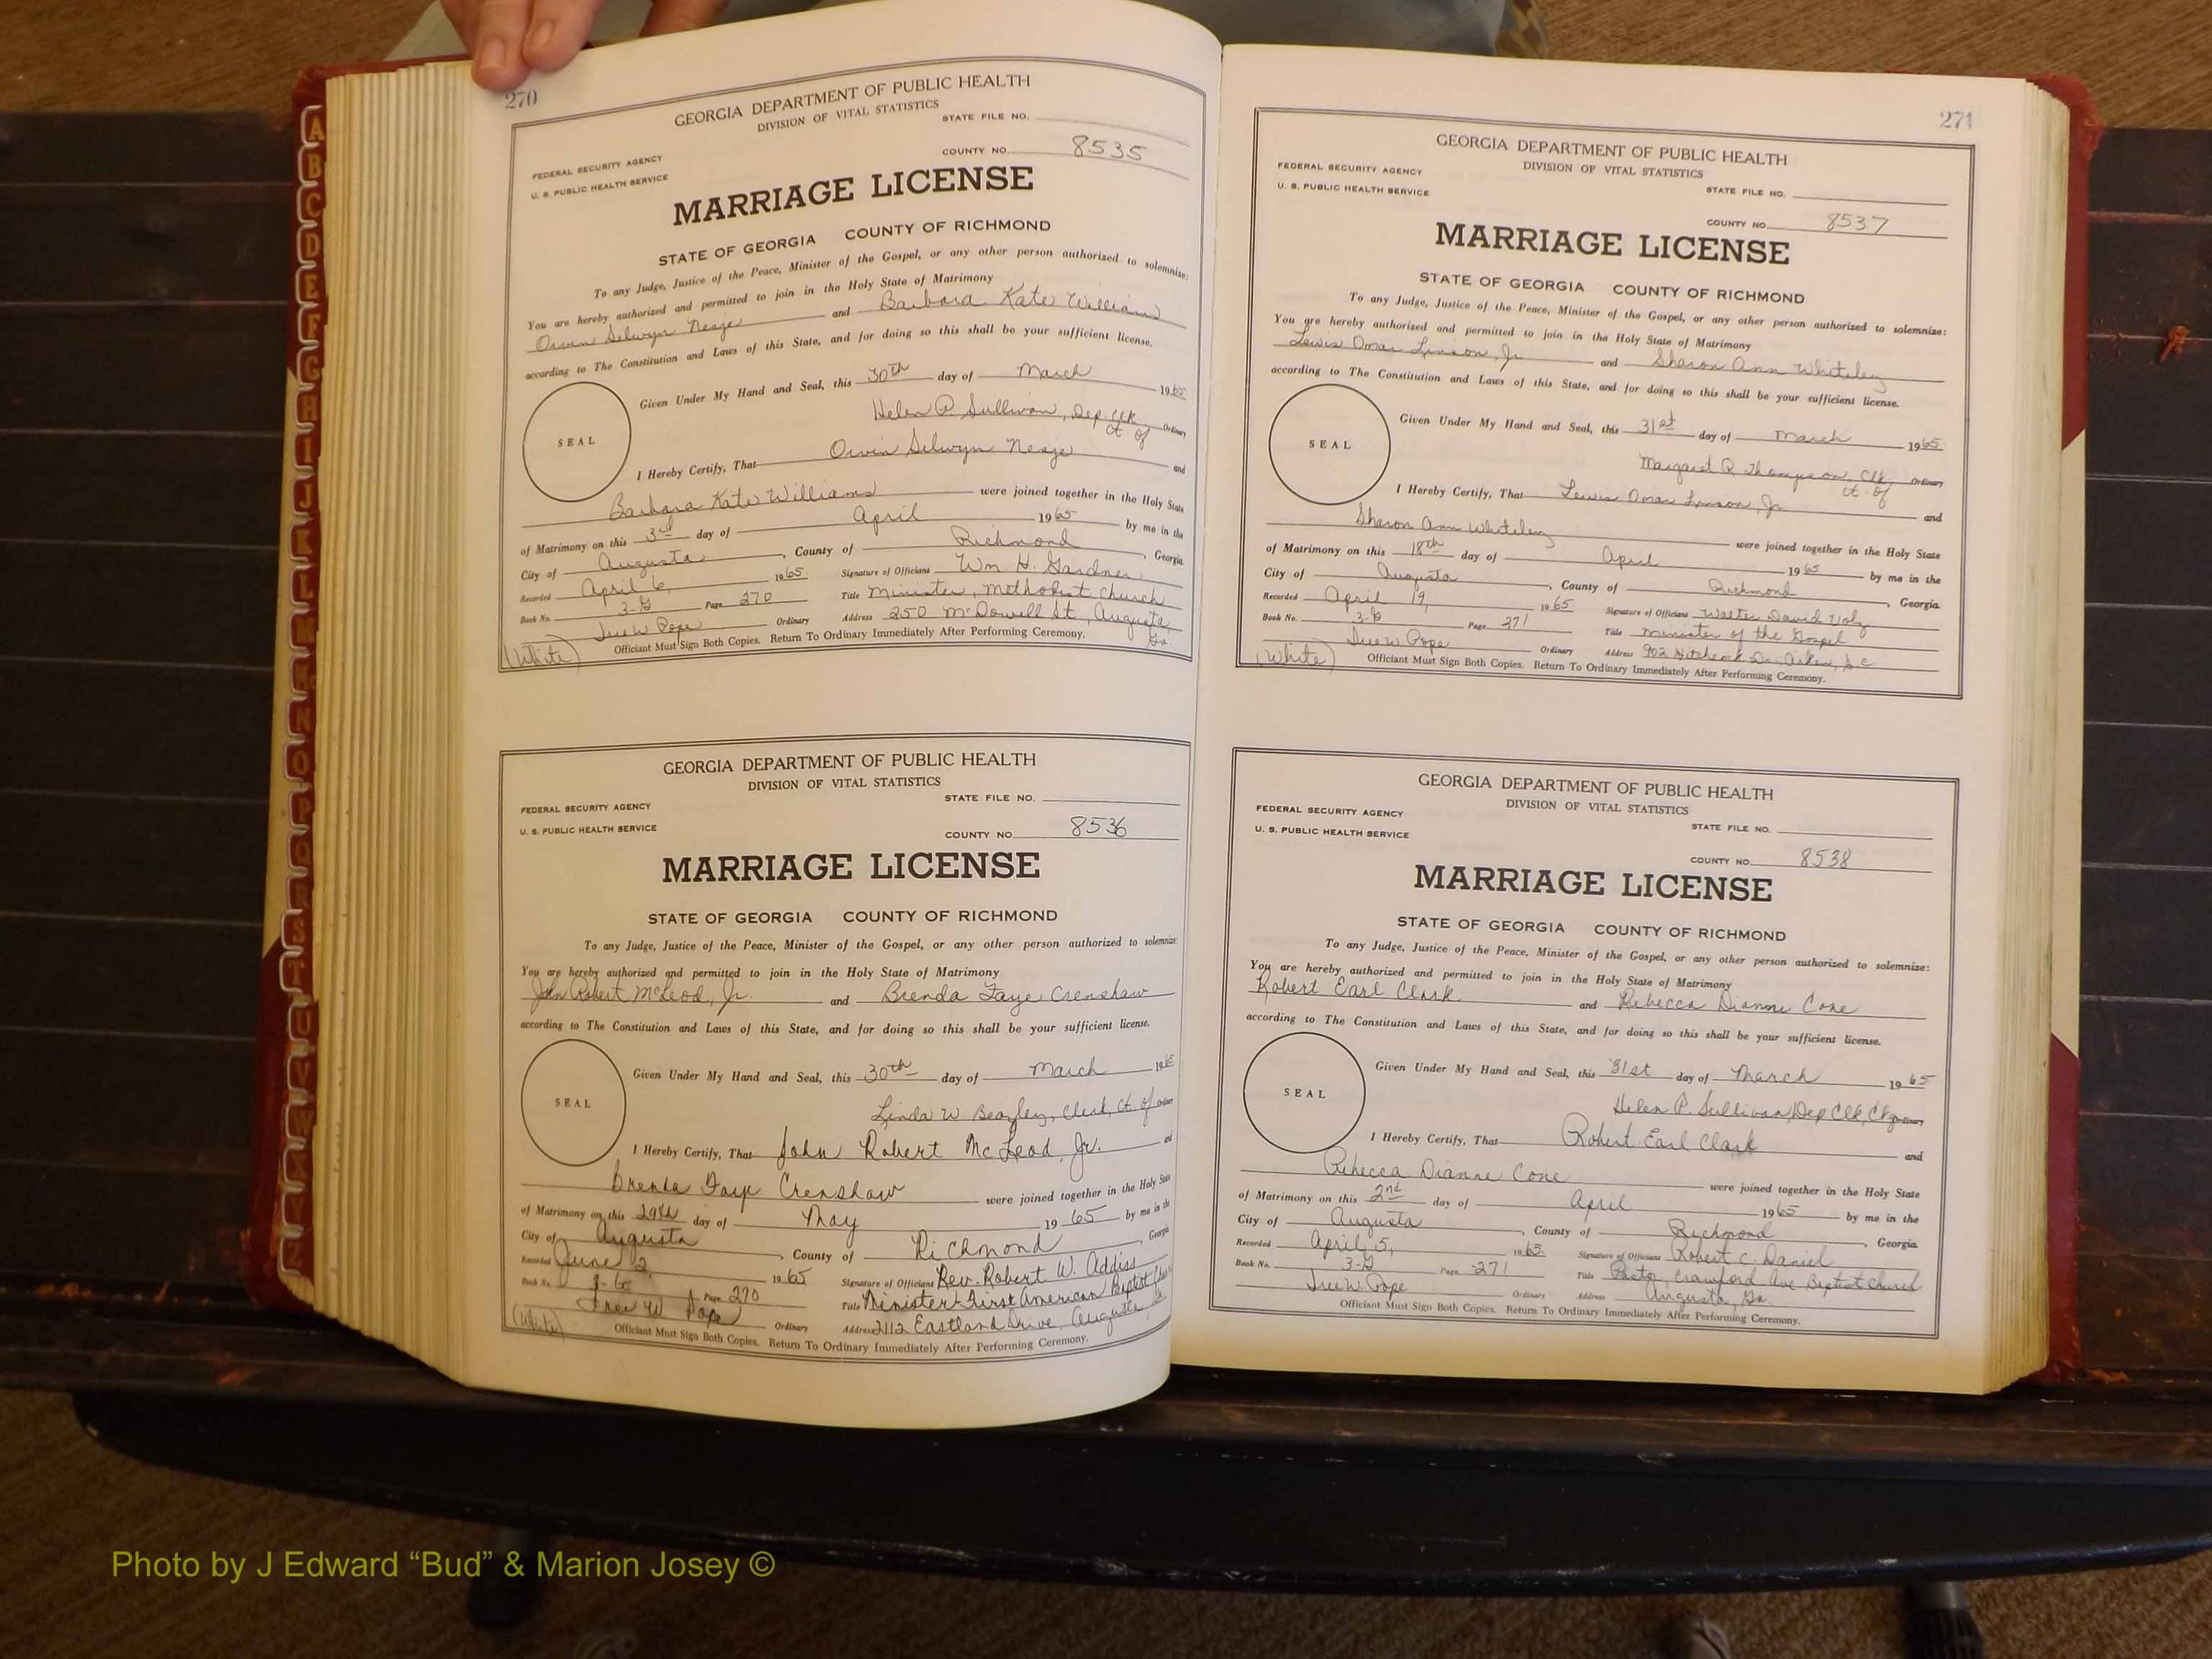 270
GEORGIA DEPARTMENT OF PUBLIC HEALTH
DIVISION OF VITAL STATISTICS
STATE FILE NO.
FEDERAL SECURITY AGENCY
COUNTY NO. 8535
U. S. PUBLIC HEALTH SERVICE
MARRIAGE LICENSE
STATE OF GEORGIA COUNTY OF RICHMOND
To any Judge, Justice of the Peace, Minister of the Gospel, or any other person authorized to solemnize:
You are hereby authorized and permitted to join in the Holy State of Matrimony
Orvin Selwyn Nesge and Barbara Kate Williams
according to The Constitution and Laws of this State, and for doing so this shall be your sufficient license.
SEAL
Given Under My Hand and Seal, this 30th day of March 1965
Helen P. Sullivan, Dep. Clk Ct. of Ordinary
I Hereby Certify, That Orvin Selwyn Nesge and
Barbara Kate Williams were joined together in the Holy State
of Matrimony on this 3rd day of April 1965 by me in the
City of Augusta, County of Richmond, Georgia
Recorded April 6, 1965 Signature of Officiant Wm H. Gardner
Book No. 3-G Page 270 Title Minister, Methodist Church
Sue W Pope Ordinary Address 250 McDowell St., Augusta, Ga.
(White) Officiant Must Sign Both Copies. Return To Ordinary Immediately After Performing Ceremony.
GEORGIA DEPARTMENT OF PUBLIC HEALTH
DIVISION OF VITAL STATISTICS
STATE FILE NO.
FEDERAL SECURITY AGENCY
U. S. PUBLIC HEALTH SERVICE
COUNTY NO. 8536
MARRIAGE LICENSE
STATE OF GEORGIA COUNTY OF RICHMOND
To any Judge, Justice of the Peace, Minister of the Gospel, or any other person authorized to solemnize:
You are hereby authorized and permitted to join in the Holy State of Matrimony
John Robert McLeod, Jr. and Brenda Faye Crenshaw
according to The Constitution and Laws of this State, and for doing so this shall be your sufficient license.
SEAL
Given Under My Hand and Seal, this 30th day of March 1965
Linda W. Beazley, Clerk, Ct. of Ordinary
I Hereby Certify, That John Robert McLeod, Jr. and
Brenda Faye Crenshaw were joined together in the Holy State
of Matrimony on this 29th day of May 1965 by me in the
City of Augusta, County of Richmond Georgia
Recorded June 2 1965 Signature of Officiant Rev. Robert W. Addiss
Book No. 3-G Page 270 Title Minister-First American Baptist Church
Sue W Pope Ordinary Address 2112 Eastland Drive, Augusta Ga
(White) Officiant Must Sign Both Copies. Return To Ordinary Immediately After Performing Ceremony.
271
GEORGIA DEPARTMENT OF PUBLIC HEALTH
DIVISION OF VITAL STATISTICS
FEDERAL SECURITY AGENCY
U. S. PUBLIC HEALTH SERVICE
STATE FILE NO.
COUNTY NO. 8537
MARRIAGE LICENSE
STATE OF GEORGIA COUNTY OF RICHMOND
To any Judge, Justice of the Peace, Minister of the Gospel, or any other person authorized to solemnize:
You are hereby authorized and permitted to join in the Holy State of Matrimony
Lewis Omar Jr. and Sharon Ann Whiteley
according to The Constitution and Laws of this State, and for doing so this shall be your sufficient license.
SEAL
Given Under My Hand and Seal, this 31st day of March 1965
Margaret R. Thompson, Clk, Ct. of Ordinary
I Hereby Certify, That Lewis Omar Jr. and
Sharon Ann Whiteley were joined together in the Holy State
of Matrimony on this 18th day of April 1965 by me in the
City of Augusta, County of Richmond, Georgia.
Recorded April 19, 1965 Signature of Officiant Walter David
Book No. 3-G Page 271 Title Minister of the Gospel
Sue W Pope Ordinary Address 902 Hitchcock Dr., Aiken, S C
(White) Officiant Must Sign Both Copies. Return To Ordinary Immediately After Performing Ceremony.
GEORGIA DEPARTMENT OF PUBLIC HEALTH
DIVISION OF VITAL STATISTICS
FEDERAL SECURITY AGENCY
STATE FILE NO.
U. S. PUBLIC HEALTH SERVICE
COUNTY NO. 8538
MARRIAGE LICENSE
STATE OF GEORGIA COUNTY OF RICHMOND
To any Judge, Justice of the Peace, Minister of the Gospel, or any other person authorized to solemnize:
You are hereby authorized and permitted to join in the Holy State of Matrimony
Robert Earl Clark and Rebecca Dianne Cone
according to The Constitution and Laws of this State, and for doing so this shall be your sufficient license.
SEAL
Given Under My Hand and Seal, this 31st day of March 1965
Helen P. Sullivan, Dep Clk, Ordinary
I Hereby Certify, That Robert Earl Clark and
Rebecca Dianne Cone were joined together in the Holy State
of Matrimony on this 2nd day of April 1965 by me in the
City of Augusta, County of Richmond, Georgia.
Recorded April 5, 1965 Signature of Officiant Robert C. Daniel
Book No. 3-G Page 271 Title Pastor, Crawford Ave Baptist Church
Sue W Pope Ordinary Address Augusta, Ga.
Officiant Must Sign Both Copies. Return To Ordinary Immediately After Performing Ceremony.
A
B
C
D
E
F
G
H
I
J
K
L
M
Mc
N
O
P
Q
R
S
T
U
V
W
X
Y
Z
Photo by J Edward “Bud” & Marion Josey ©